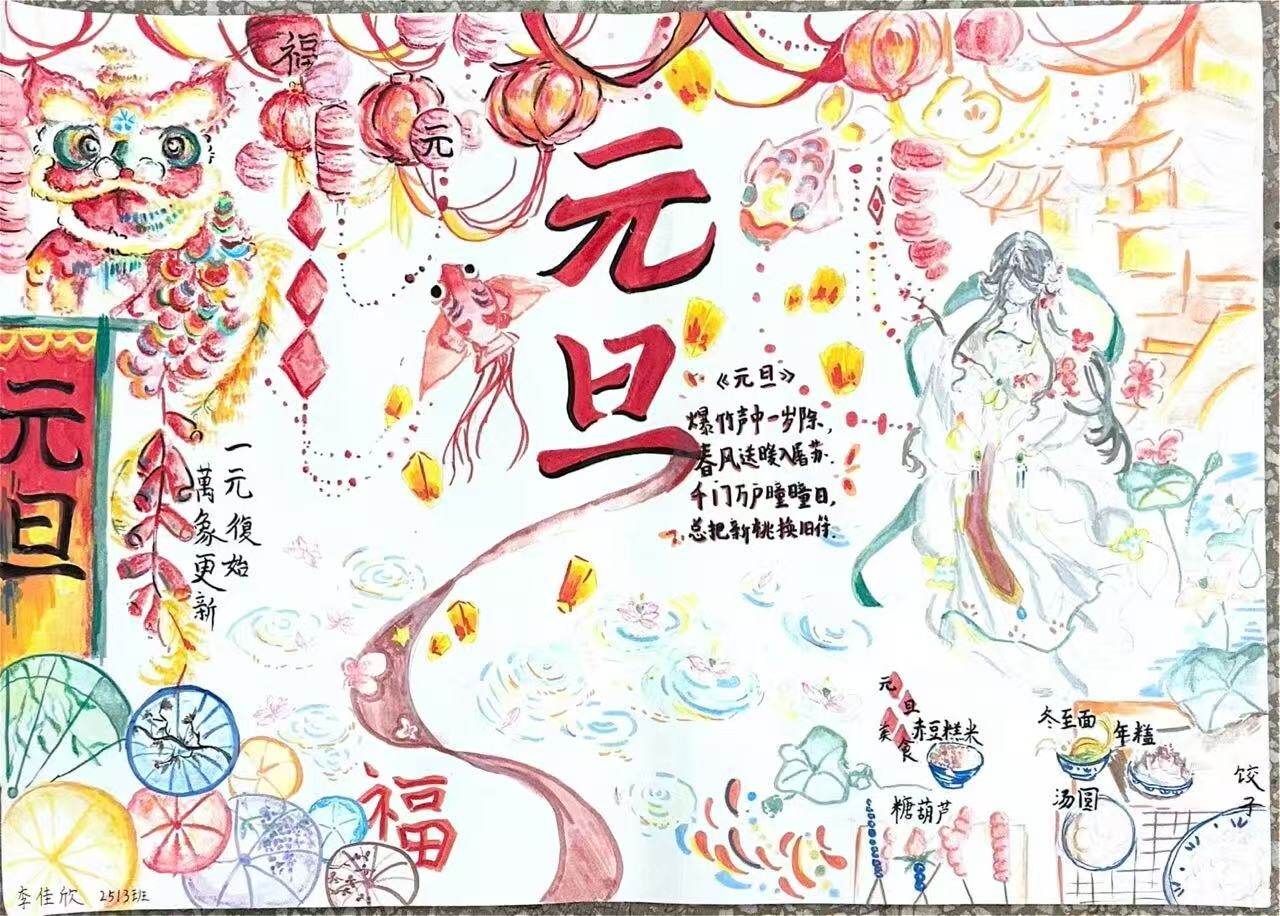 福
元
元旦
元旦
一元復始
萬象更新
《元旦》
爆竹声中一岁除，
春风送暖入屠苏.
千门万户曈曈日，
总把新桃换旧符.
福
元旦美食
赤豆糕米
冬至面
年糕
汤圆
饺子
糖葫芦
李佳欣 2513班